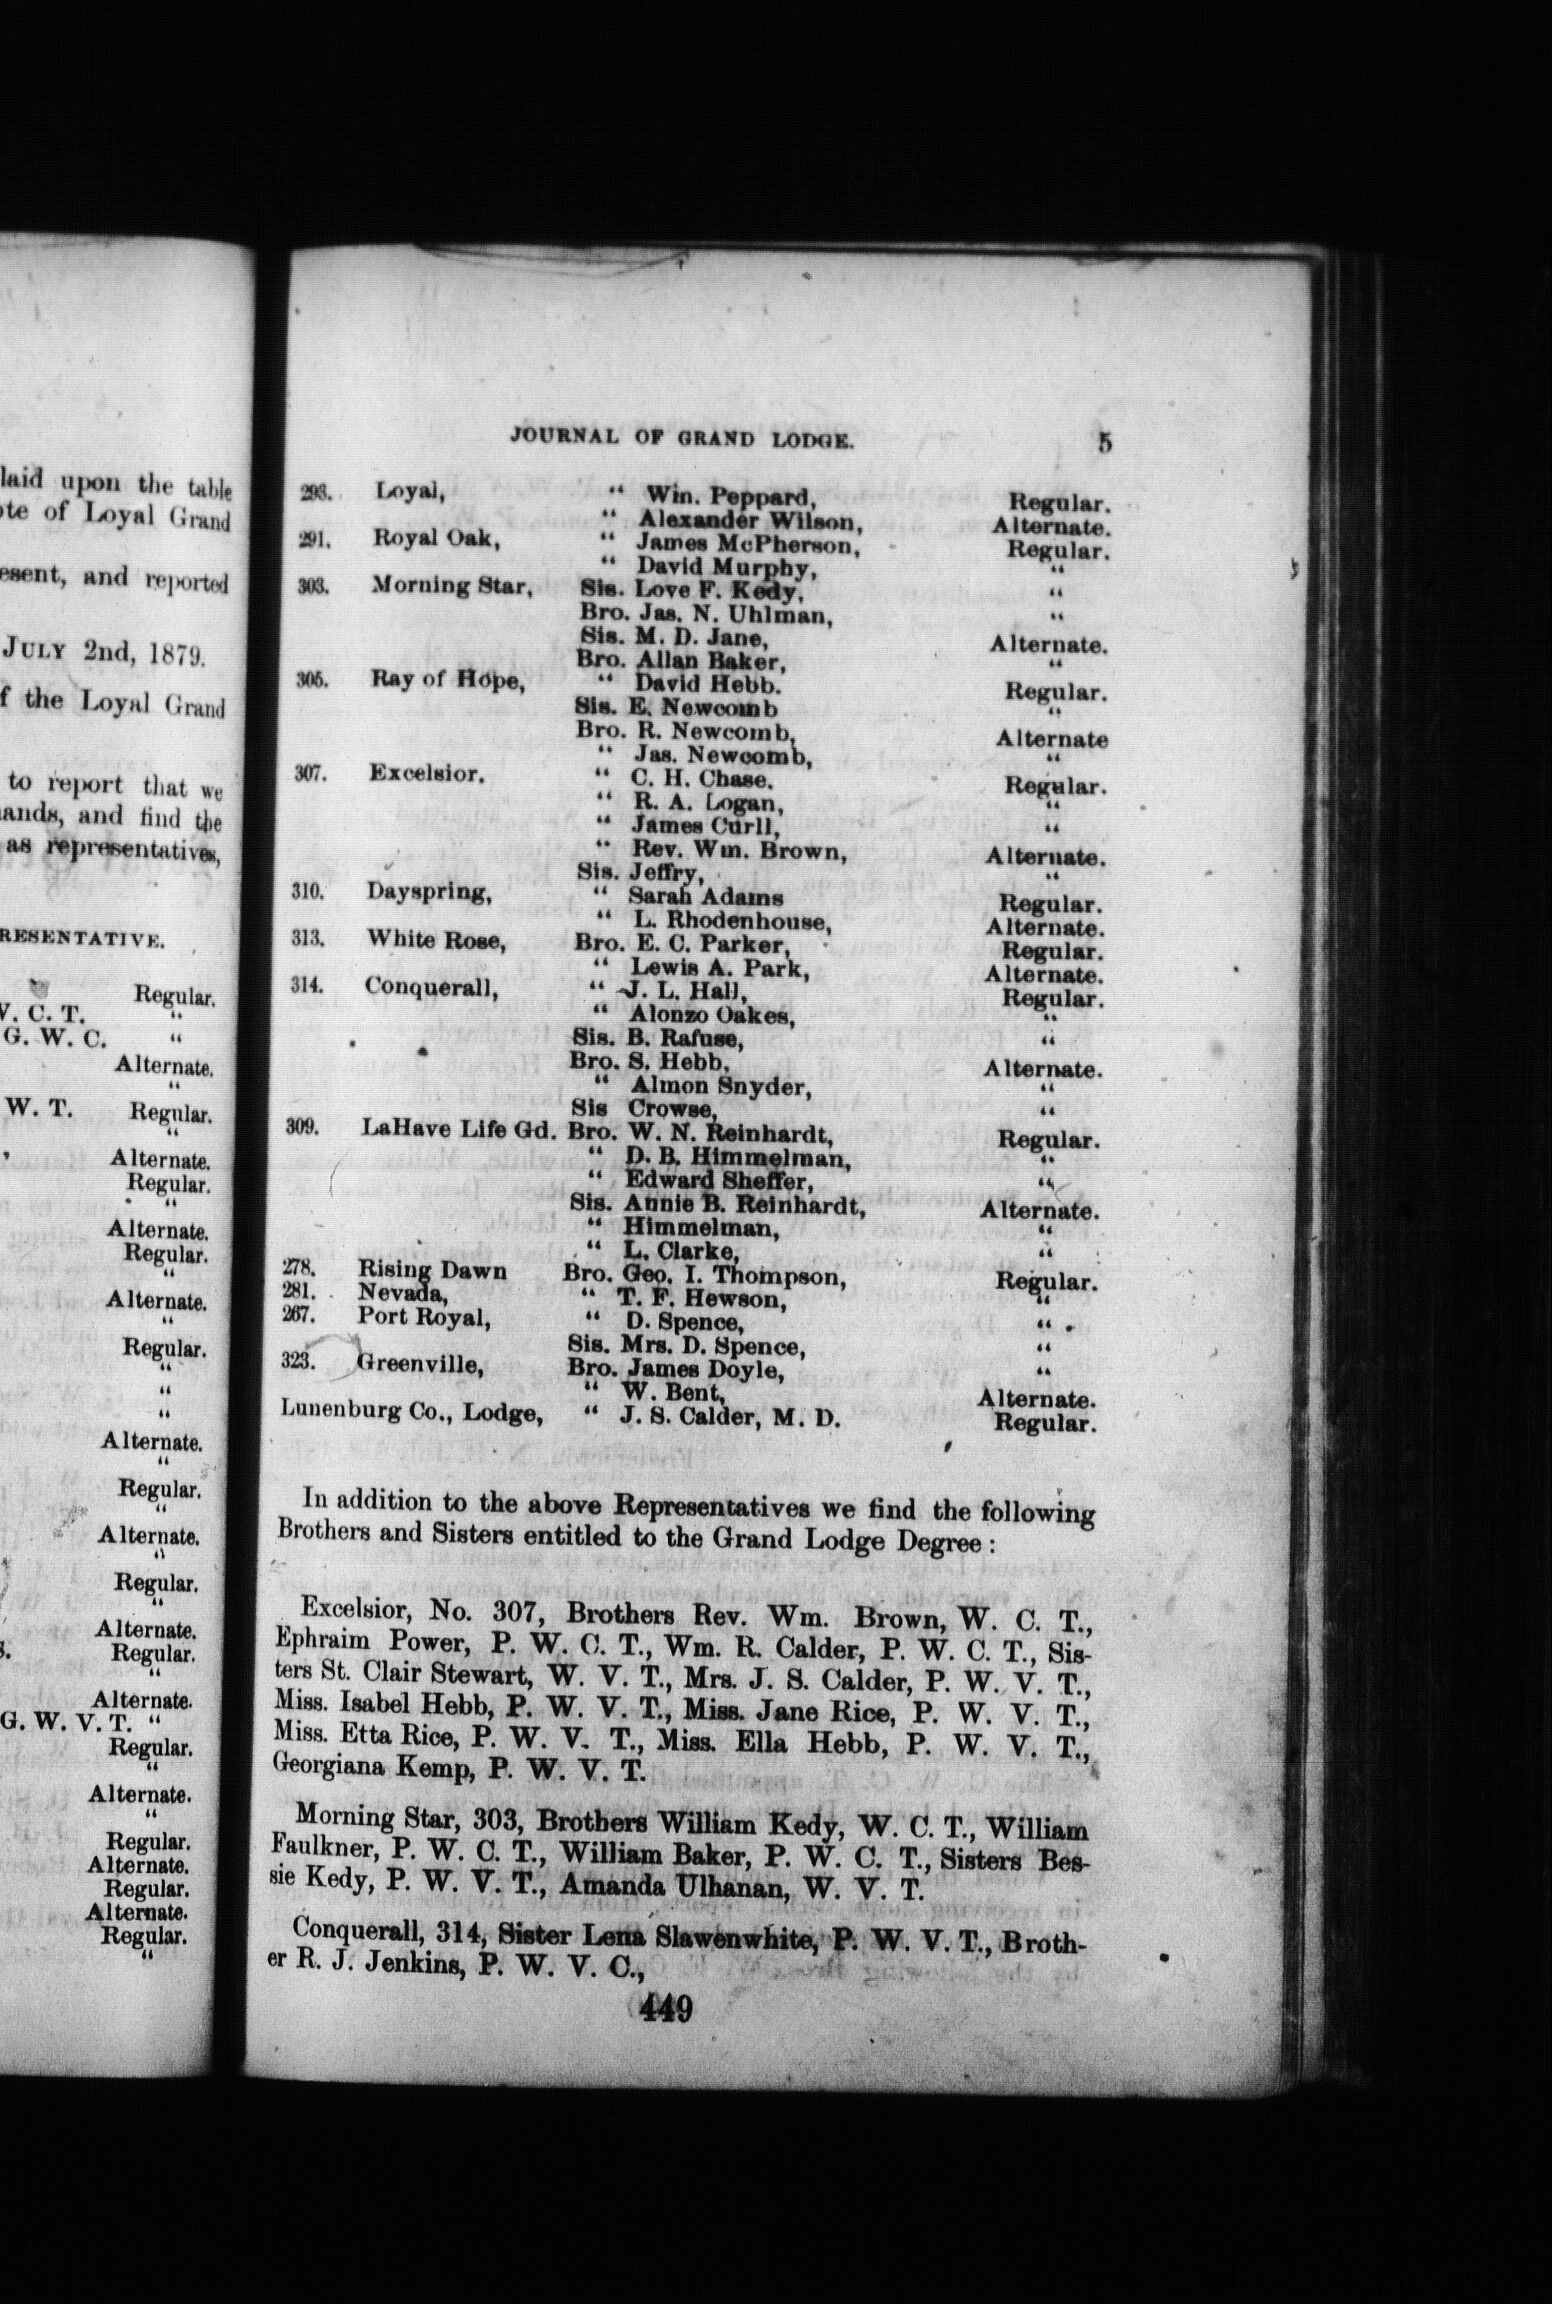 laid upon the table
ote of Loyal Grand
esent, and reported
JULY 2nd, 1879.
f the Loyal Grand
to report that we
ands, and find the
as representatives,
RESENTATIVE.
Regular.
V. C. T. "
G. W. C. "
Alternate.
"
W. T. Regular.
"
Alternate.
Regular.
"
Alternate.
Regular.
"
Alternate.
"
Regular.
"
"
"
Alternate.
"
Regular.
"
Alternate.
"
Regular.
"
Alternate.
S. Regular.
"
Alternate.
G. W. V. T. "
Regular.
"
Alternate.
"
Regular.
Alternate.
Regular.
Alternate.
Regular.
"
JOURNAL OF GRAND LODGE. 5
293. Loyal, " Wm. Peppard, Regular.
" Alexander Wilson, Alternate.
291. Royal Oak, " James McPherson, Regular.
" David Murphy, "
303. Morning Star, Sis. Love F. Kedy, "
Bro. Jas. N. Uhlman, "
Sis. M. D. Jane, Alternate.
Bro. Allan Baker, "
305. Ray of Hope, " David Hebb. Regular.
Sis. E. Newcomb "
Bro. R. Newcomb, Alternate
" Jas. Newcomb, "
307. Excelsior. " C. H. Chase. Regular.
" R. A. Logan, "
" James Curll, "
" Rev. Wm. Brown, Alternate.
Sis. Jeffry, "
310. Dayspring, " Sarah Adams Regular.
" L. Rhodenhouse, Alternate.
313. White Rose, Bro. E. C. Parker, Regular.
" Lewis A. Park, Alternate.
314. Conquerall, " J. L. Hall, Regular.
" Alonzo Oakes, "
Sis. B. Rafuse, "
Bro. S. Hebb, Alternate.
" Almon Snyder, "
Sis Crowse, "
309. LaHave Life Gd. Bro. W. N. Reinhardt, Regular.
" D. B. Himmelman, "
" Edward Sheffer, "
Sis. Annie B. Reinhardt, Alternate.
" Himmelman, "
" L. Clarke, "
278. Rising Dawn Bro. Geo. I. Thompson, Regular.
281. Nevada, " T. F. Hewson, "
267. Port Royal, " D. Spence, "
Sis. Mrs. D. Spence, "
323. Greenville, Bro. James Doyle, "
" W. Bent, Alternate.
Lunenburg Co., Lodge, " J. S. Calder, M. D. Regular.
In addition to the above Representatives we find the following
Brothers and Sisters entitled to the Grand Lodge Degree:
Excelsior, No. 307, Brothers Rev. Wm. Brown, W. C. T.,
Ephraim Power, P. W. C. T., Wm. R. Calder, P. W. C. T., Sis-
ters St. Clair Stewart, W. V. T., Mrs. J. S. Calder, P. W. V. T.,
Miss. Isabel Hebb, P. W. V. T., Miss. Jane Rice, P. W. V. T.,
Miss. Etta Rice, P. W. V. T., Miss. Ella Hebb, P. W. V. T.,
Georgiana Kemp, P. W. V. T.
Morning Star, 303, Brothers William Kedy, W. C. T., William
Faulkner, P. W. C. T., William Baker, P. W. C. T., Sisters Bes-
sie Kedy, P. W. V. T., Amanda Ulhanan, W. V. T.
Conquerall, 314, Sister Lena Slawenwhite, P. W. V. T., Broth-
er R. J. Jenkins, P. W. V. C.,
449